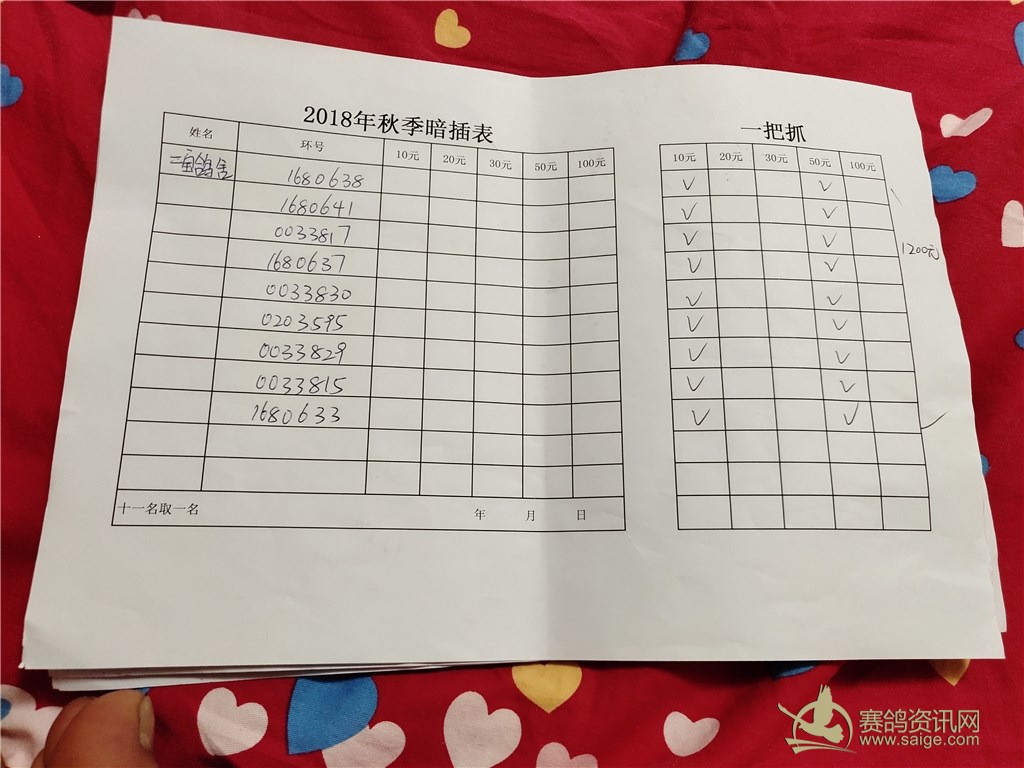 2018年秋季暗插表 一把抓
姓名 环号 10元 20元 30元 50元 100元 10元 20元 30元 50元 100元
鸽舍 1680638 ✓ ✓
1680641 ✓ ✓
0033817 ✓ ✓
1680637 ✓ ✓
1200元
0033830 ✓ ✓
0203595 ✓ ✓
0033829 ✓ ✓
0033815 ✓ ✓
1680633 ✓ ✓
十一名取一名 年 月 日
赛鸽资讯网
www.saige.com